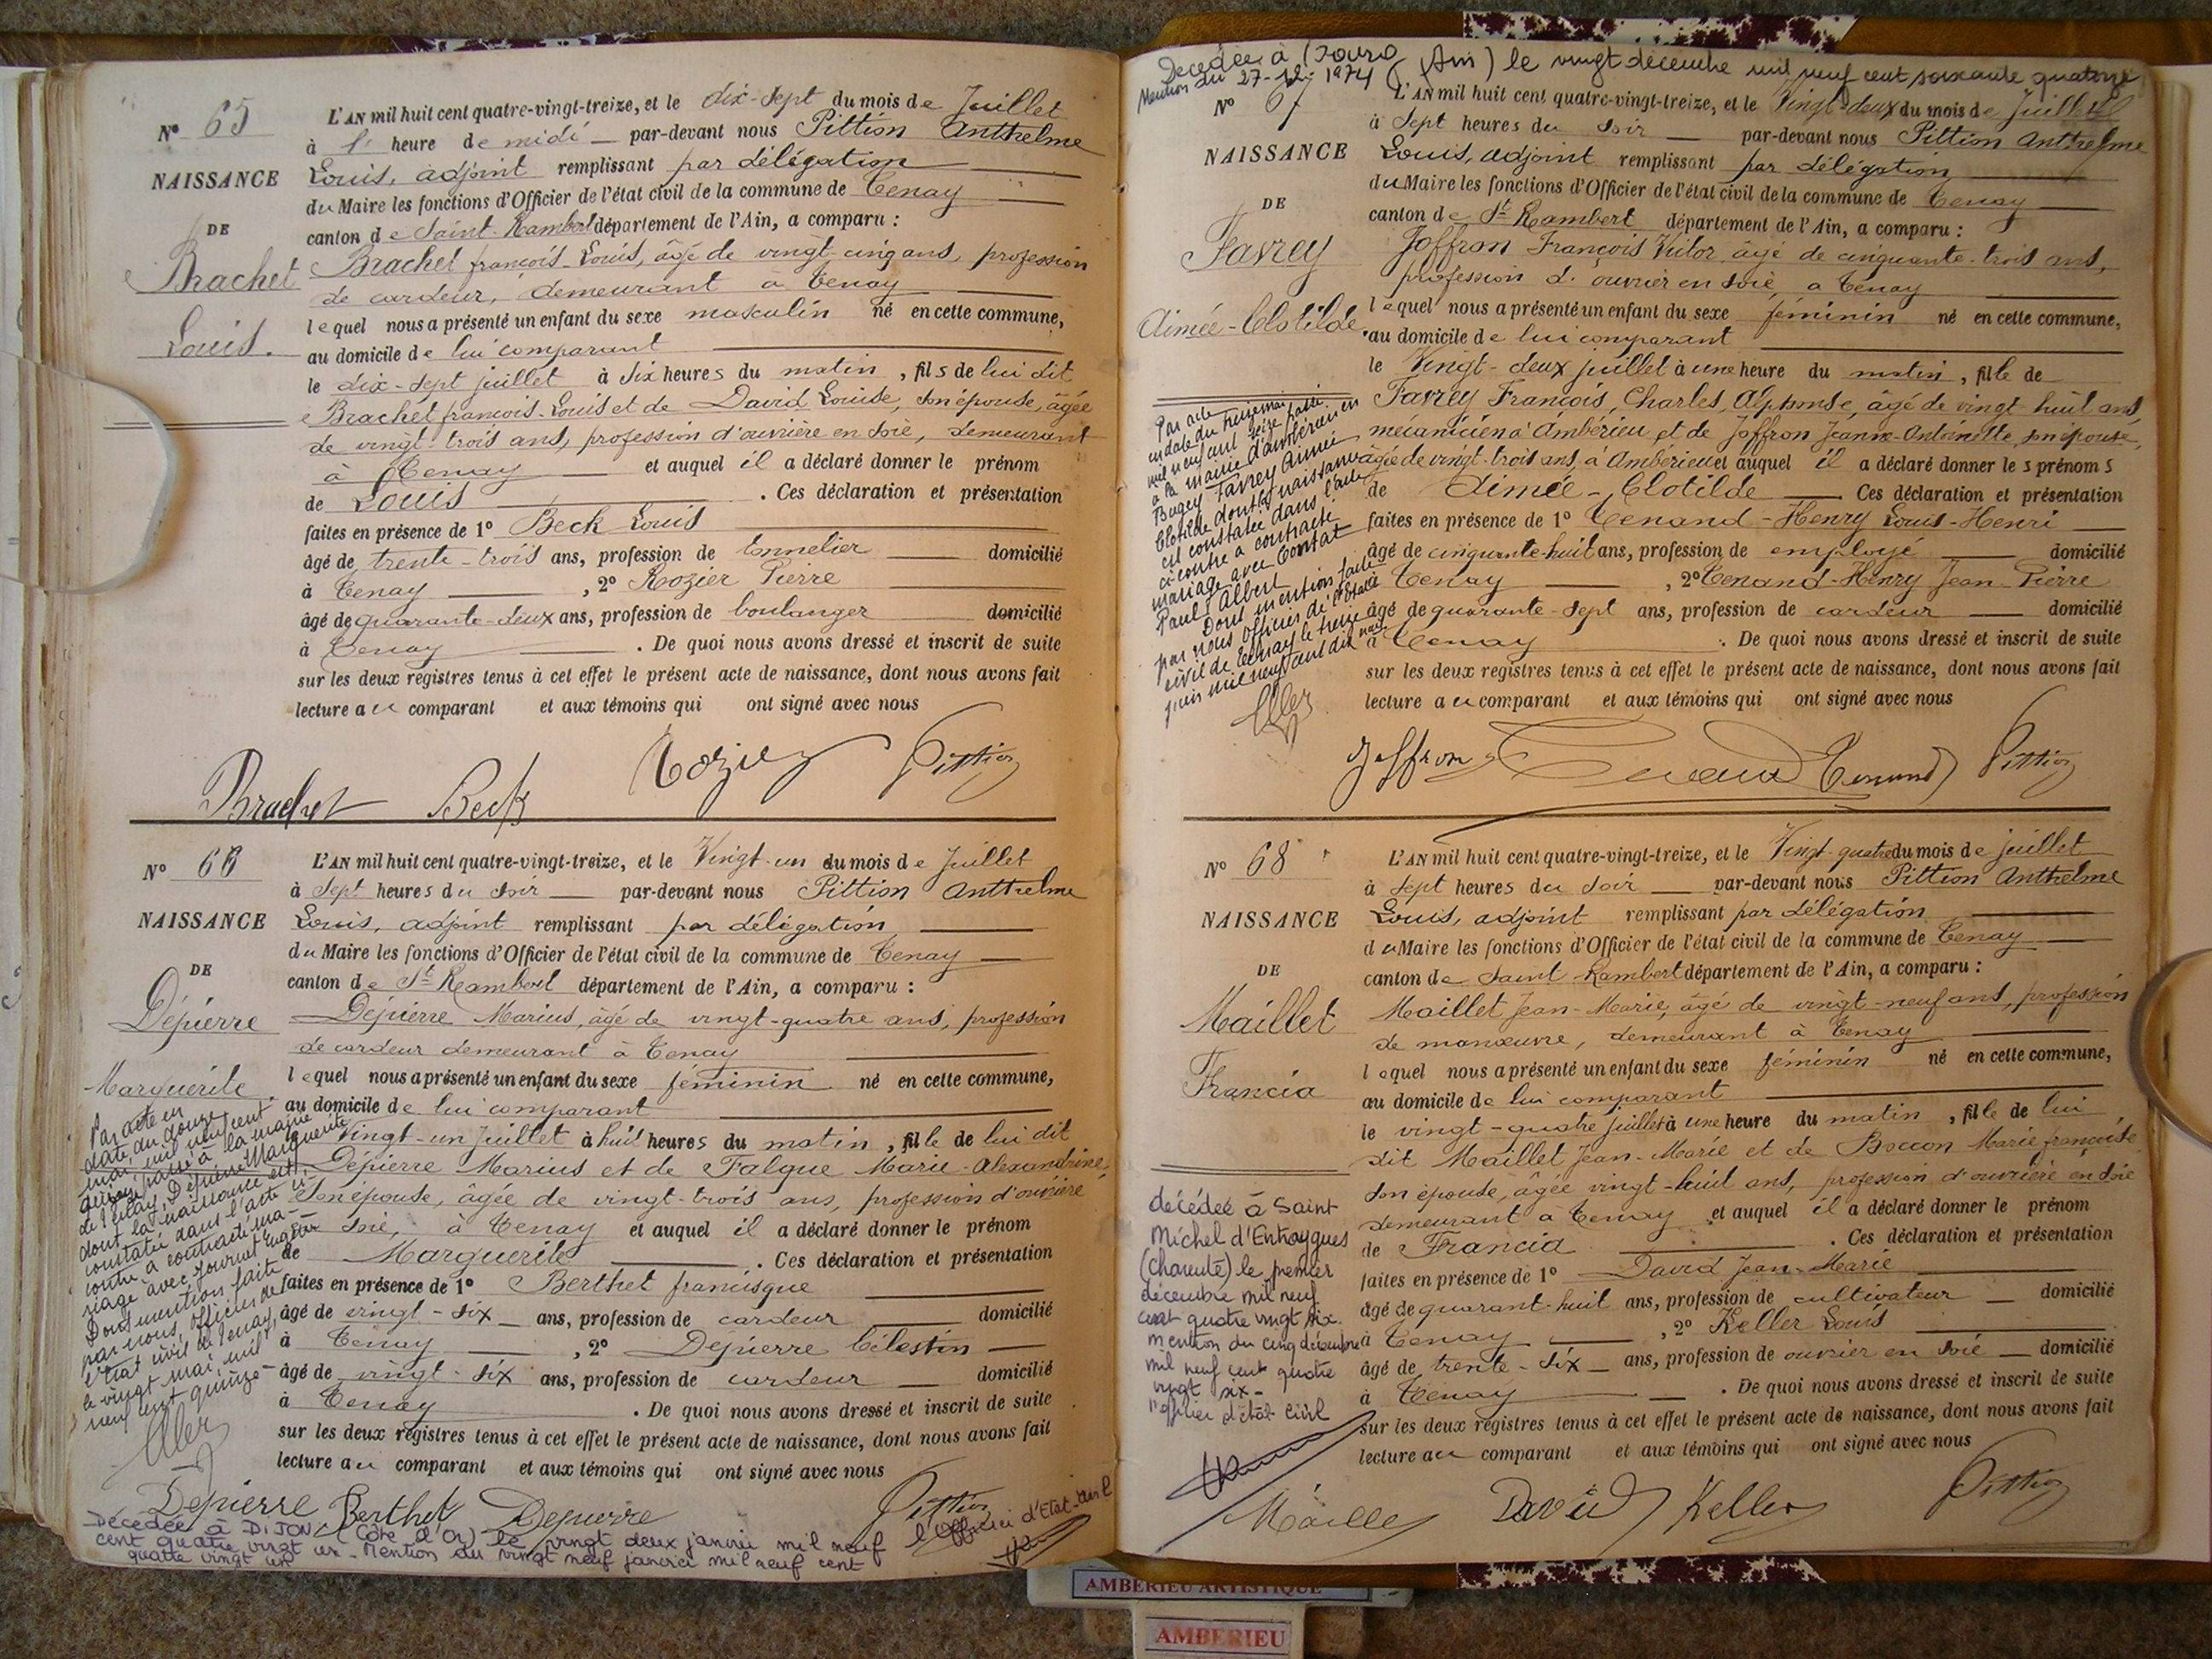 N° 65
NAISSANCE
DE
Brachet
Louis.
L'AN mil huit cent quatre-vingt-treize, et le dix-sept du mois de Juillet
à l' heure de midi par-devant nous Pittion Anthelme
Louis, adjoint remplissant par délégation
du Maire les fonctions d'Officier de l'état civil de la commune de Tenay
canton de Saint-Rambert département de l'Ain, a comparu :
Brachet françois-Louis, âgé de vingt-cinq ans, profession
de cardeur, demeurant à Tenay
lequel nous a présenté un enfant du sexe masculin né en cette commune,
au domicile de lui comparant
le dix-sept juillet à six heures du matin, fils de lui dit
Brachet françois-Louis et de David Louise, son épouse, âgée
de vingt-trois ans, profession d'ouvrière en soie, demeurant
à Tenay et auquel il a déclaré donner le prénom
de Louis. Ces déclaration et présentation
faites en présence de 1° Beck Louis
âgé de trente-trois ans, profession de tonnelier domicilié
à Tenay, 2° Rozier Pierre
âgé de quarante-deux ans, profession de boulanger domicilié
à Tenay. De quoi nous avons dressé et inscrit de suite
sur les deux registres tenus à cet effet le présent acte de naissance, dont nous avons fait
lecture au comparant et aux témoins qui ont signé avec nous
Brachet Beck Rozier Pittion
N° 66
NAISSANCE
DE
Dépierre
Marguerite
L'AN mil huit cent quatre-vingt-treize, et le Vingt-un du mois de Juillet
à sept heures du soir par-devant nous Pittion Anthelme
Louis, adjoint remplissant par délégation
du Maire les fonctions d'Officier de l'état civil de la commune de Tenay
canton de St Rambert département de l'Ain, a comparu :
Dépierre Marius, âgé de vingt-quatre ans, profession
de cardeur demeurant à Tenay
lequel nous a présenté un enfant du sexe féminin né en cette commune,
au domicile de lui comparant
Vingt-un Juillet à huit heures du matin, fille de lui dit
Dépierre Marius et de Falque Marie-Alexandrine,
son épouse, âgée de vingt-trois ans, profession d'ouvrière
soie, à Tenay et auquel il a déclaré donner le prénom
de Marguerite. Ces déclaration et présentation
faites en présence de 1° Berthet francisque
âgé de vingt-six ans, profession de cardeur domicilié
à Tenay, 2° Dépierre Célestin
âgé de vingt-six ans, profession de cardeur domicilié
à Tenay. De quoi nous avons dressé et inscrit de suite
sur les deux registres tenus à cet effet le présent acte de naissance, dont nous avons fait
lecture au comparant et aux témoins qui ont signé avec nous
Par acte en
date du douze
mai mil neuf cent
passé à la mairie
de Tenay, Dépierre Marguerite
dont la naissance est
constatée dans l'acte ci-
contre a contracté ma-
riage avec Journet
Dont mention faite
par nous, officier de
l'état civil de Tenay,
le vingt mai, mil
neuf cent quinze
Depierre Berthet Depierre Pittion
Décédée à DIJON (Côte d'Or) le vingt deux janvier mil neuf
cent quatre vingt un - Mention du vingt neuf janvier mil neuf cent
quatre vingt un
l'Officier d'Etat-Civil
Décédée à (Ain) le vingt décembre mil neuf cent soixante quatorze
Mention du 27-12-1974
N° 67
NAISSANCE
DE
Favrey
Aimée-Clotilde.
L'AN mil huit cent quatre-vingt-treize, et le Vingt-deux du mois de Juillet
à Sept heures du soir par-devant nous Pittion Anthelme
Louis, adjoint remplissant par délégation
du Maire les fonctions d'Officier de l'état civil de la commune de Tenay
canton de St Rambert département de l'Ain, a comparu :
Joffron François Victor, âgé de cinquante-trois ans,
profession d'ouvrier en soie, à Tenay
lequel nous a présenté un enfant du sexe féminin né en cette commune,
au domicile de lui comparant
le Vingt-deux juillet à une heure du matin, fille de
Favrey François, Charles, Alphonse, âgé de vingt-huit ans,
mécanicien à Ambérieu et de Joffron Jeanne-Antoinette, son épouse,
âgée de vingt-trois ans, à Ambérieu et auquel il a déclaré donner les prénoms
de Aimée-Clotilde Ces déclaration et présentation
faites en présence de 1° Tenand-Henry Louis-Henri
âgé de cinquante-huit ans, profession de employé domicilié
à Tenay, 2° Tenand-Henry Jean Pierre
âgé de quarante-sept ans, profession de cardeur domicilié
à Tenay. De quoi nous avons dressé et inscrit de suite
sur les deux registres tenus à cet effet le présent acte de naissance, dont nous avons fait
lecture au comparant et aux témoins qui ont signé avec nous
Par acte
en date du treize mai
mil neuf cent seize passé
à la mairie d'Ambérieu en
Bugey Favrey Aimée
Clotilde dont la naissance
est constatée dans l'acte
ci-contre a contracté
mariage avec Contat
Paul Albert
Dont mention faite
par nous officier de l'état
civil de Tenay le treize
juin mil neuf cent dix neuf
Joffron Tenand Tenand Pittion
N° 68
NAISSANCE
DE
Maillet
Francia
L'AN mil huit cent quatre-vingt-treize, et le Vingt-quatre du mois de juillet
à sept heures du soir par-devant nous Pittion Anthelme
Louis, adjoint remplissant par délégation
du Maire les fonctions d'Officier de l'état civil de la commune de Tenay
canton de Saint-Rambert département de l'Ain, a comparu :
Maillet Jean-Marie, âgé de vingt-neuf ans, profession
de manœuvre, demeurant à Tenay
lequel nous a présenté un enfant du sexe féminin né en cette commune,
au domicile de lui comparant
le vingt-quatre juillet à une heure du matin, fille de lui
dit Maillet Jean-Marie et de Boccon Marie françoise
son épouse, âgée vingt-huit ans, profession d'ouvrière en soie
demeurant à Tenay et auquel il a déclaré donner le prénom
de Francia. Ces déclaration et présentation
faites en présence de 1° David Jean-Marie
âgé de quarant-huit ans, profession de cultivateur domicilié
à Tenay, 2° Keller Louis
âgé de trente-six ans, profession de ouvrier en soie domicilié
à Tenay. De quoi nous avons dressé et inscrit de suite
sur les deux registres tenus à cet effet le présent acte de naissance, dont nous avons fait
lecture au comparant et aux témoins qui ont signé avec nous
décédée à Saint
Michel d'Entraygues
(Charente) le premier
décembre mil neuf
cent quatre vingt six.
mention du cinq décembre
mil neuf cent quatre
vingt six -
l'officier d'état civil
Maillet David Keller Pittion
AMBERIEU ARTISTIQUE
AMBERIEU